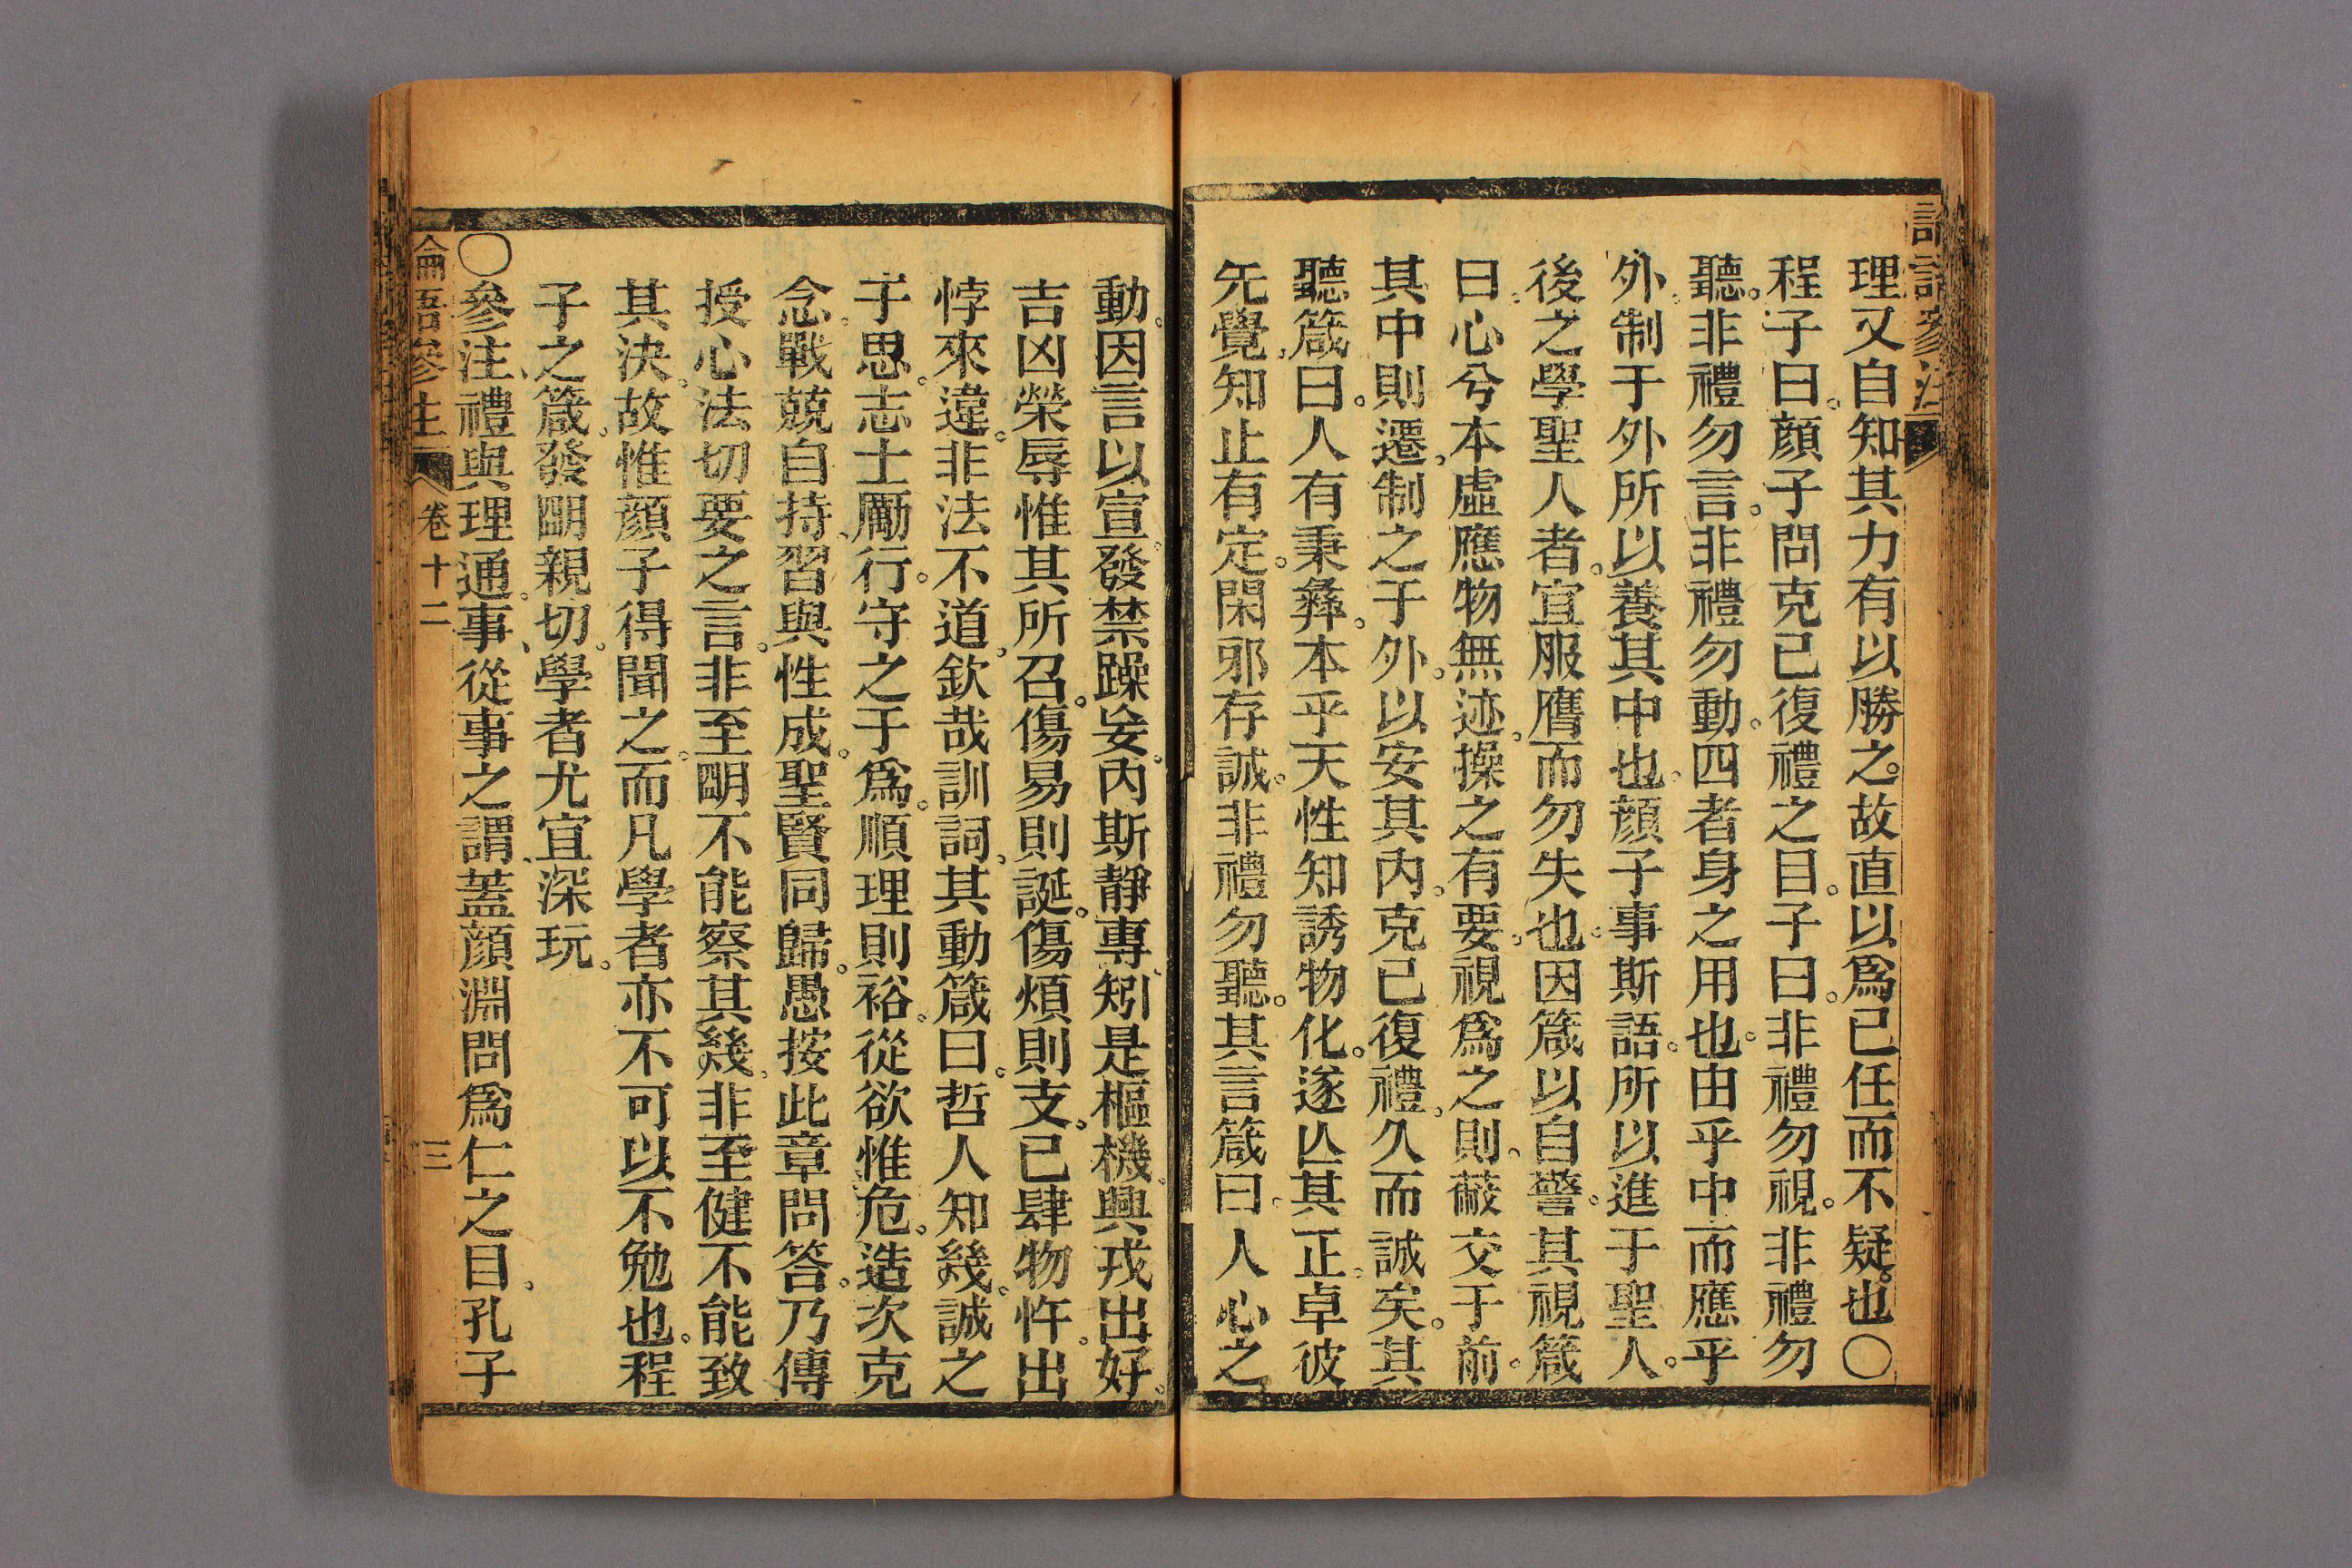 理又自知其力有以勝之。故直以爲已任而不疑。也〇
程子曰。顔子問克己復禮之目。子曰。非禮勿視。非禮勿
聽。非禮勿言。非禮勿動。四者身之用也。由乎中而應乎
外。制于外所以養其中也。顔子事斯語。所以進于聖人。
後之學聖人者。宜服膺而勿失也。因箴以自警。其視箴
曰。心兮本虛應物無迹。操之有要。視爲之則。蔽交于前。
其中則遷。制之于外。以安其內。克己復禮。久而誠矣。其
聽箴曰。人有秉彝。本乎天性知誘物化。遂亾其正。卓彼
先覺。知止有定。閑邪存誠。非禮勿聽。其言箴曰。人心之
動。因言以宣。發禁躁妄。內斯靜專。矧是樞機。興戎出好。
吉凶榮辱惟其所召。傷易則誕。傷煩則支。已肆物忤。出
悖來違。非法不道。欽哉訓詞。其動箴曰。哲人知幾。誠之
于思。志士勵行。守之于爲。順理則裕。從欲惟危。造次克
念。戰兢自持。習與性成。聖賢同歸。愚按此章問答。乃傳
授心法切要之言。非至朙不能察其幾。非至健不能致
其決。故惟顔子得聞之。而凡學者亦不可以不勉也。程
子之箴。發朙親切。學者尤宜深玩。
〇參注。禮與理通。事、從事之謂。蓋顔淵問爲仁之目、孔子
論語參注 卷十二 三